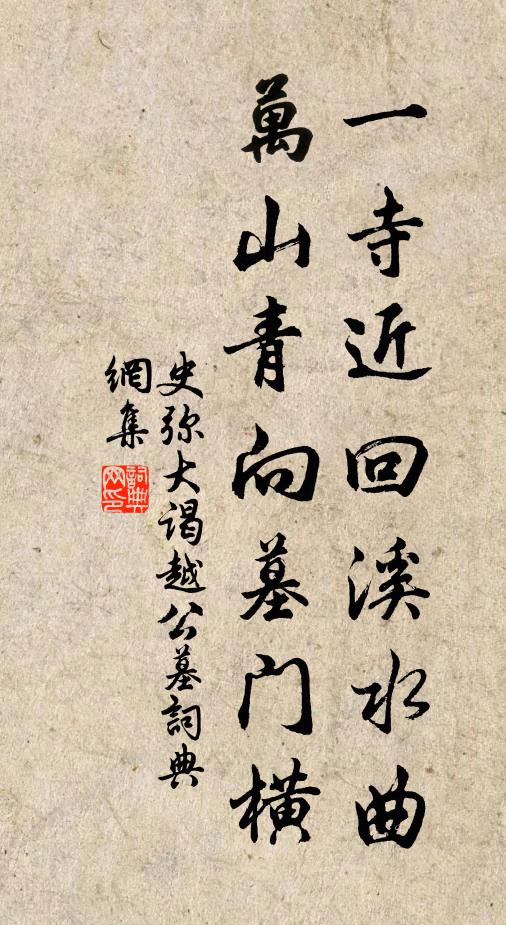 一寺近回溪水曲
萬山青向墓门橫
史弥大谒越公墓詞典
網集
詞典
网印